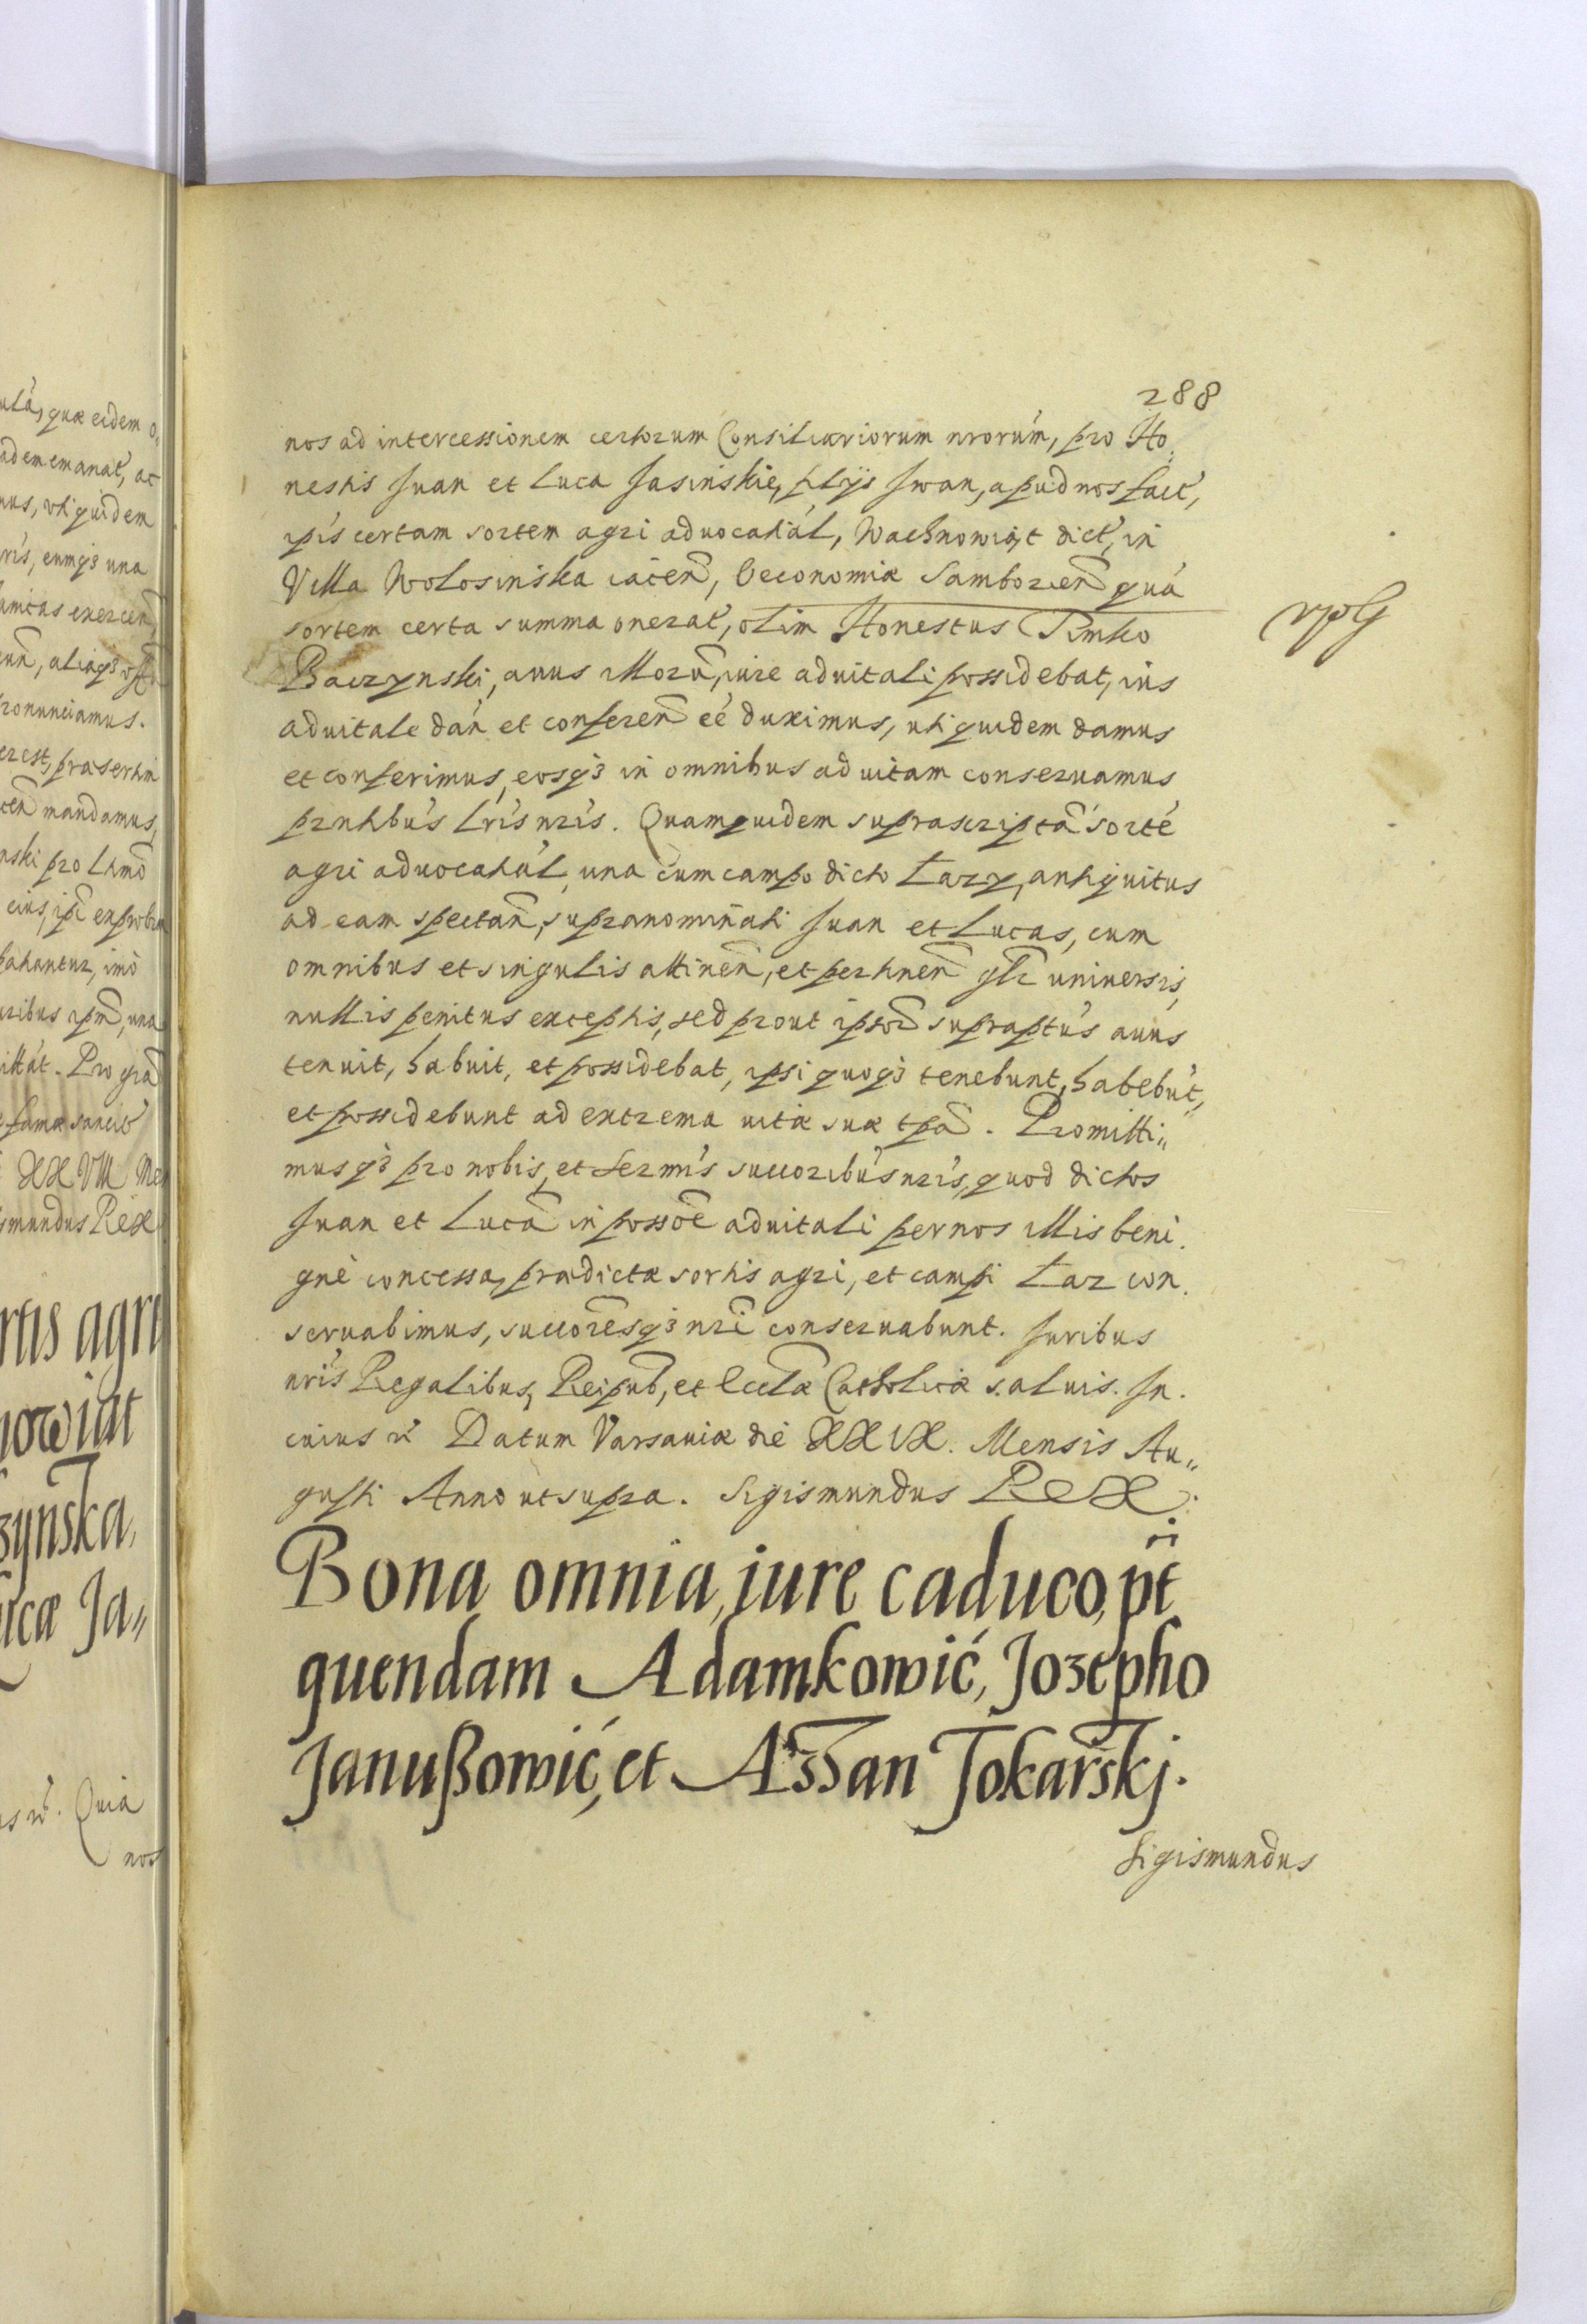 288
nos ad intercessionem certorum Consiliariorum nrorum, pro Ho
nestis Juan et Luca Jasinskie, filijs Jwan, apud nos fact,
ipis certam sortem agri aduocatiál, Wachnowiąt dict, in
Villa Wolosinska iacen, Oeconomiæ Samborien quá
sortem certa summa onerat, olim Honestus Timko
Baczynski, auus illorũ, iure aduitali possidebat, ius
aduitale dán et conferen eé duximus, uti quidem damus
et conferimus, eosq3 in omnibus ad uitam conseruamus
prntibus Lris nris. Quamquidem suprascriptã sorté
agri aduocatiál, una cum campo dicto Łazy, antiquitus
ad eam spectan, supranominati Juan et Lucas, cum
omnibus et singulis attinen, et pertinen gtr uniuersis,
nullis penitus exceptis, sed prout ipsor supraptus auus
tenuit, habuit, et possidebat, ipsi quoq3 tenebunt, habebút,
et possidebunt ad extrema uitæ suæ tpa. Promitti„
musq3 pro nobis, et Sermis successoribus nris, quod dictos
Juan et Lucã in possoe aduitali per nos illis beni.
gnè concessa, prædictæ sortis agri, et campi Łaz con.
seruabimus, successoresq3 nri conseruabunt. Juribus
nris Regalibus, Reipub, et Eccła Catholicæ saluis. In.
cuius rei Datum Varsauiæ die XXIX. Mensis Au„
gusti Anno ut supra. Sigismundus Rex.
Bona omnia, iure caduco, pt
quendam Adamkowić, Jozepho
Janußowić, et Assan Tokarskj.
Sigismundus
ulá, quæ eidem
ad em emanat, ac
mus, uti quidem
ris, eumq3 una
amicas exercen,
ronunciamus.
erest, præsertim
mandamus,
nski pro
pahantur, imò
una
Pro
XXVIII Men
smundus Rex
rtis agri
nowiat
zynska,
ucæ Ja„
Quia
nos